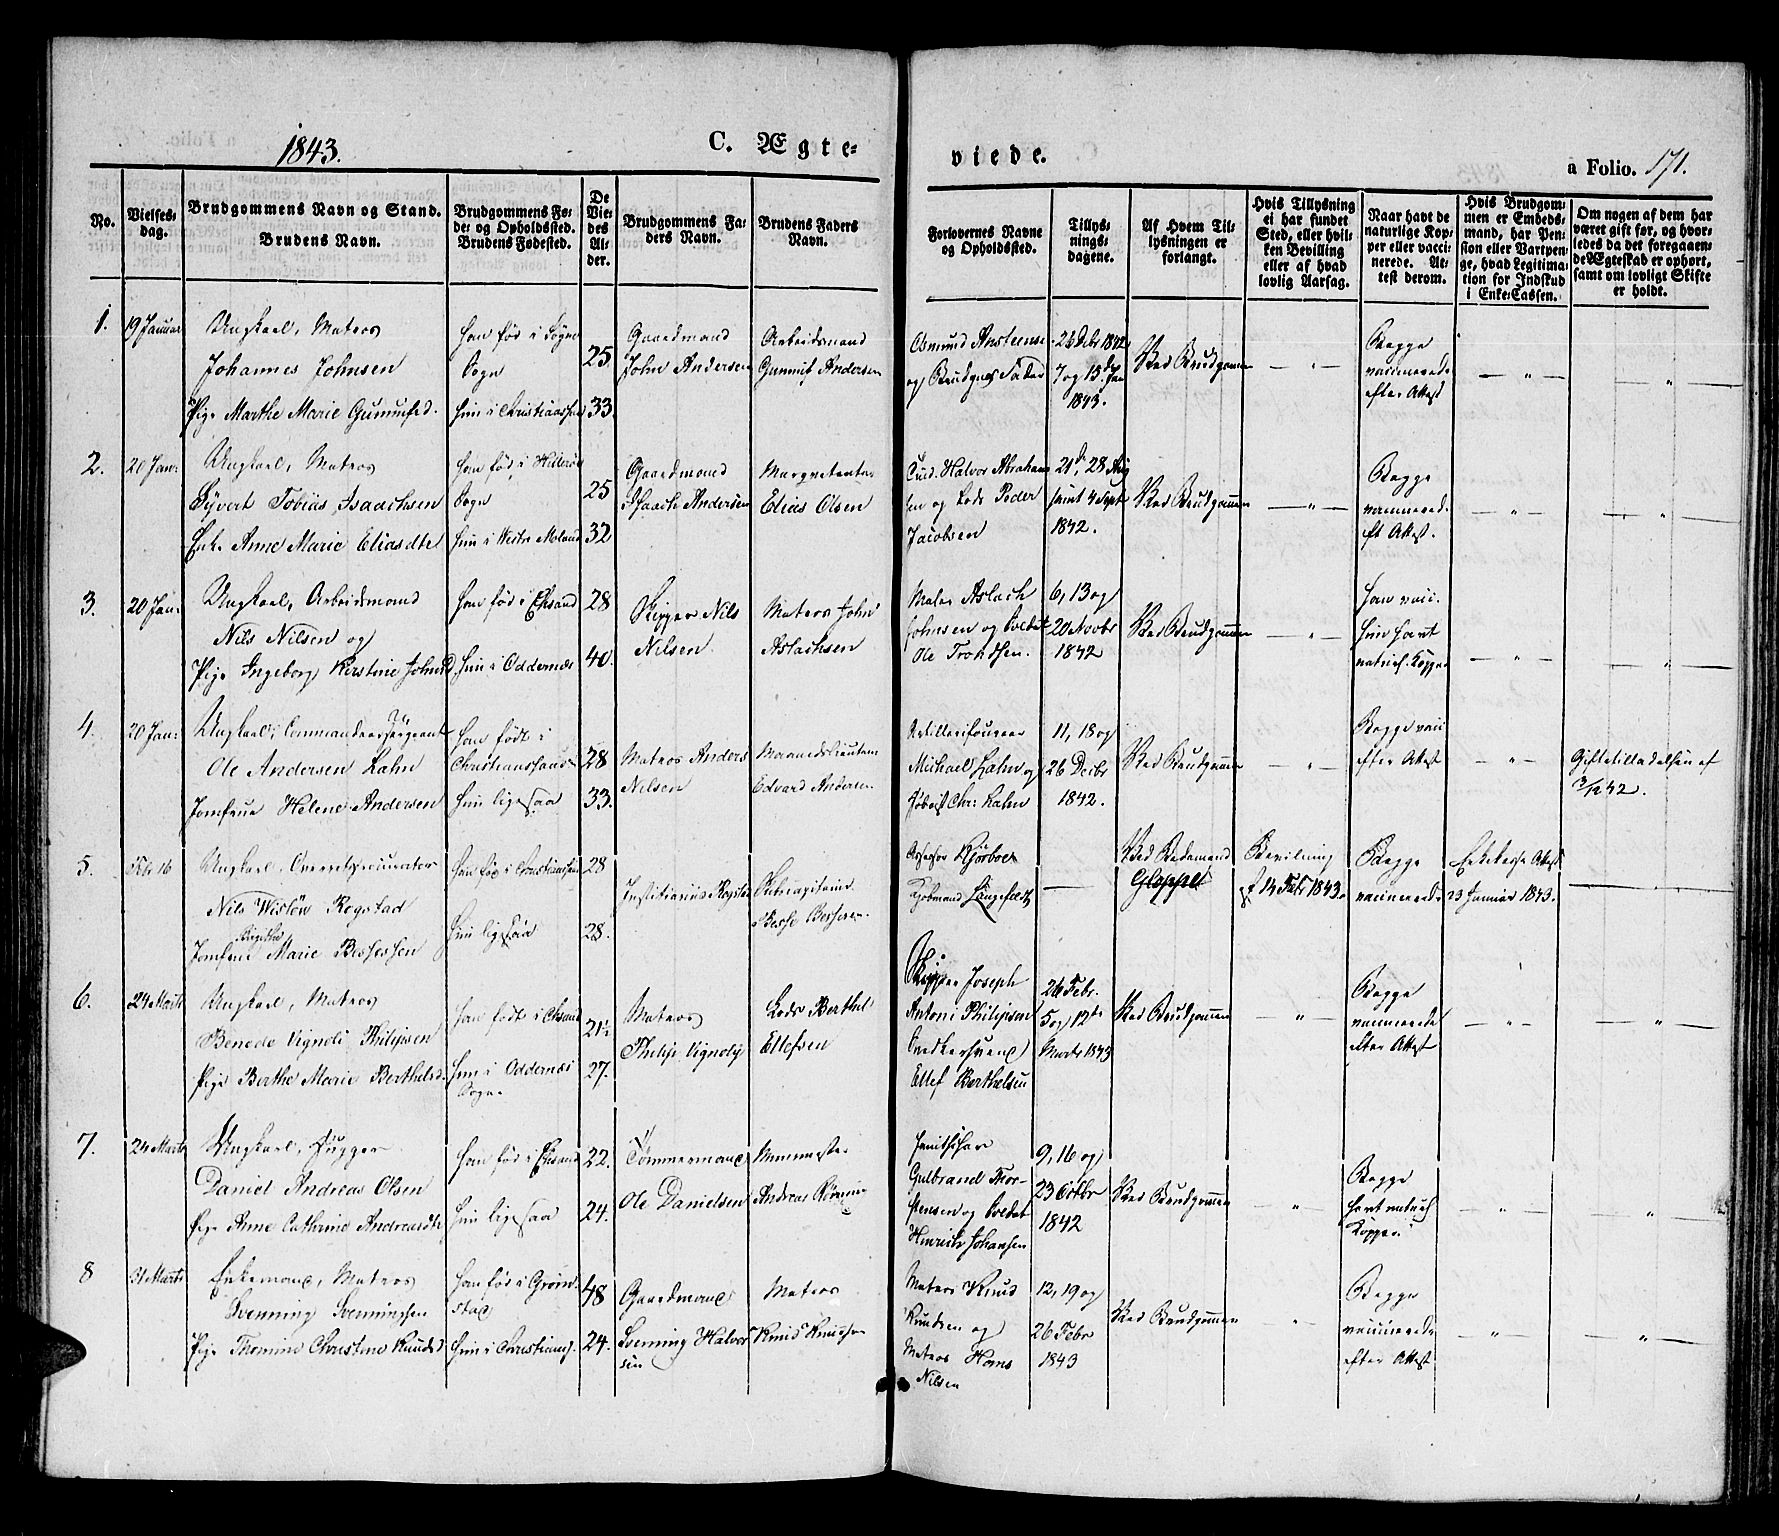 1843.
C. Ægte-
viede.
a Folio. 171.
No.
Vielses-
dag.
Brudgommens Navn og Stand.
Brudens Navn.
Brudgommens Fø-
de- og Opholdssted.
Brudens Fødested.
De
Vie-
des
Al-
der.
Brudgommens Fa-
ders Navn.
Brudens Faders
Navn.
Forlovernes Navne
og Opholdssted.
Tillys-
nings-
dagene.
Af Hvem Til-
lysningen er
forlangt.
Hvis Tillysning
ei har fundet
Sted, eller hvil-
ken Bevilling
eller af hvad
lovlig Aarsag.
Naar havt de
naturlige Kop-
per eller vacci-
nerede. At-
test derom.
Hvis Brudgom-
men er Embeds-
mand, har Pen-
sion eller Vartpen-
ge, hvad Legitima-
tion for Indskud
i Enke-Cassen.
Om nogen af dem har
været gift før, og hvor-
ledes da det foregaaen-
de Ægteskab er ophørt,
samt om lovligt Skifte
er holdt.
1.
19 Januar
Ungkarl, Matros
Johannes Johnsen
Pige Marthe Marie Gunnufsd.
han fød i Søgne
Sogn
hun i Christianssand
25
33.
Gaardmand
John Andersen
Arbeidsmand
Gunnuf Andersen
Osmund Anstensen
og Brudgms Fader
26 Debr 1842
7 og 15de Jan
1843.
Ved Brudgommen
Begge
vaccinerede
efter Attest
2.
20 Jan:
Ungkarl, Matros
Syvert Tobias Isaachsen
Enke Anne Marie Eliasdtr
han fød i Hitterø
Sogn
hun i Westre Moland
25
32
Gaardmand
Isaach Andersen
Elias Olsen
Halvor Abraham-
sen og Lods Peder
Jacobsen
21de, 28 Aug
samt 4 Septr
1842.
Ved Brudgommen
Begge
vaccinerede
eft Attest.
3.
20 Jan:
Ungkarl, Arbeidsmand
Nils Nilsen og
Pige Ingeborg Kirstine Johnsd.
han fød i Chsand
hun i Oddernæs
28
40.
Skipper Nils
Nilsen
Matros John
Aslachsen
Maler Aslach
Johnsen og
Ole Trondsen.
6, 13 og
20 Novbr
1842
Ved Brudgommen
han vacci.
hun havt
naturl. Kopper
4.
20 Jan:
Ungkarl, Commandeersergeant
Ole Andersen Lahn
Jomfrue Helene Andersen
han født i
Christianssand
hun ligesaa
28
33.
Matros Anders
Nilsen
Maanedslieutenant
Edvard Andersen
Artillerifoureer
Michael Lahn og
Chr: Lahn
11, 18 og
26 Decbr
1842.
Ved Brudgommen
Begge vacci
efter Attest
Giftetilladelsen af
7/12 42.
5.
Febr 16
Ungkarl, Overretsprocurator
Nils Wisløv Rogstad
Birgitha
Jomfrue Marie Bessesen
han fød i Christianssand
hun ligesaa
28
28.
Justitiarius Rogstad
Skibscapitaine
Besse Bessesen.
Assessor Kjørboe
Kjøbmand Lengefeldt
Ved Bedemand
Gloppel
Bevilning
af 14 Febr 1843.
Begge
vaccinerede
Enkekasse Attest
23 Januar 1843.
6.
24 Marts
Ungkarl, Matros
Benede Vignoli Philipsen
Pige Berthe Marie Berthelsd.
han født i Chsand
hun i Oddernæs
Sogn.
21½
27.
Matros
Philip Vignoly
Lods Berthel
Ellefsen
Skipper Joseph
Antoni Philipsen
Snedkersvend
Ellef Berthelsen
26 Febr.
5 og 12te
Marts 1843
Ved Brudgommen
Begge
vaccinerede
efter Attest
7.
24 Marts
Ungkarl, Pugger
Daniel Andreas Olsen
Pige Anne Cathrine Andreasdtr
han fød i Chsand
hun ligesaa
22.
24.
Tømmermand
Ole Danielsen
Andreas
Gulbrand Thor-
stensen og
Hinrich Johansen
9, 16 og
23 Octbr
1842
Ved Brudgommen
Begge
havt naturl
Kopper
8
31 Marts
Enkemand, Matros
Svenning Svenningsen
Pige Thomine Christine Knudsd
han fød i Grom-
stad
hun i Christianss.
48
24.
Gaardmand
Svenning Halvor-
sen
Matros
Knud Knudsen
Matros Knud
Knudsen og
Matros Hans
Nilsen
12, 19 og
26 Febr
1843
Ved Brudgommen
Begge
vaccinerede
efter Attest